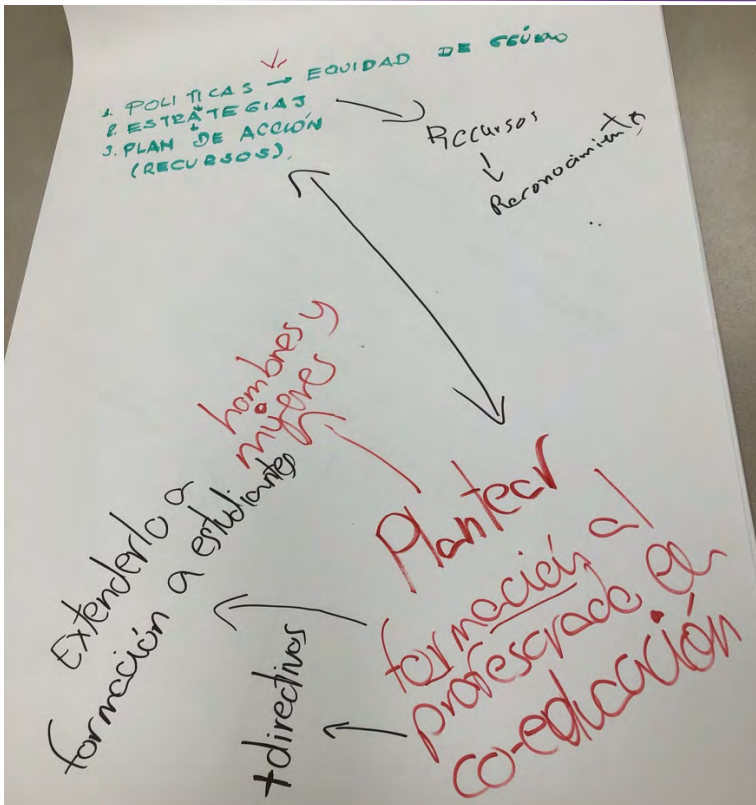 1. POLITICAS → EQUIDAD DE GÉUERO
2. ESTRATEGIAS
3. PLAN DE ACCIÓN
(RECURSOS).
Recursos
↓
Reconocimiento
hombres y
mujeres
Extenderlo a
formación a estudiantes
+directivos
Plantear
formación al
profesorado en
co-educación